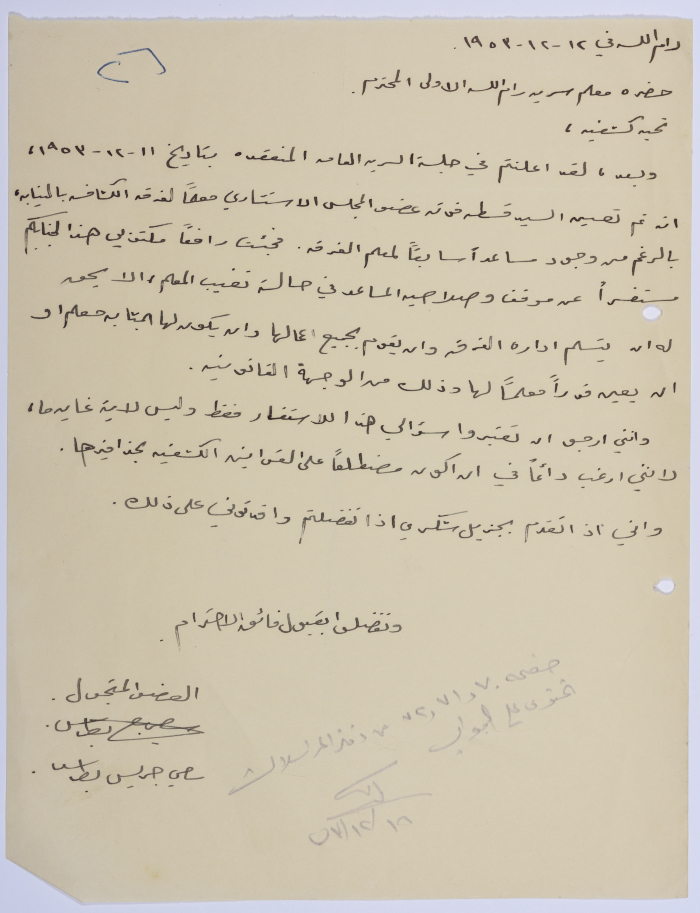 رام الله في ١٢-١٢-١٩٥٣.
حضرة معلم سرية رام الله الاولى المحترم.
تحية كشفية،
وبعد، لقد اعلنتم في جلسة السرية العامة المنعقده بتاريخ ١١-١٢-١٩٥٣،
انه تم تعيين السيد قسطه عضو المجلس الاستشاري معلماً لفرقة الكشافه بالنيابه،
بالرغم من وجود مساعداً سابقاً لمعلم الفرقه. فجئت رافعاً مكتوبي هذا لجنابكم
مستفسراً عن موقف وصلاحية المساعد في حالة تغيب المعلم، الا يحق
له ان يتسلم ادارة الفرقه وان يقوم بجميع اعمالها وان يكون لها بمثابة معلم او
ان يعين فوراً معلماً لها وذلك من الوجهة القانونيه.
وانني ارجو ان تعتبروا سؤالي هذا للاستفسار فقط وليس لاية غاية ما،
لانني ارغب دائماً في ان اكون مضطلعاً على القوانين الكشفيه بحذافيرها.
واني اذ اتقدم بجزيل شكري اذا تفضلتم وافدتوني على ذلك.
وتفضلوا بقبول فائق الاحترام.
العضو المتجول.
جريس
صفحه ٧٠، ٧١، ٧٢ من دفتر المراسلات
تحتوي على الجواب